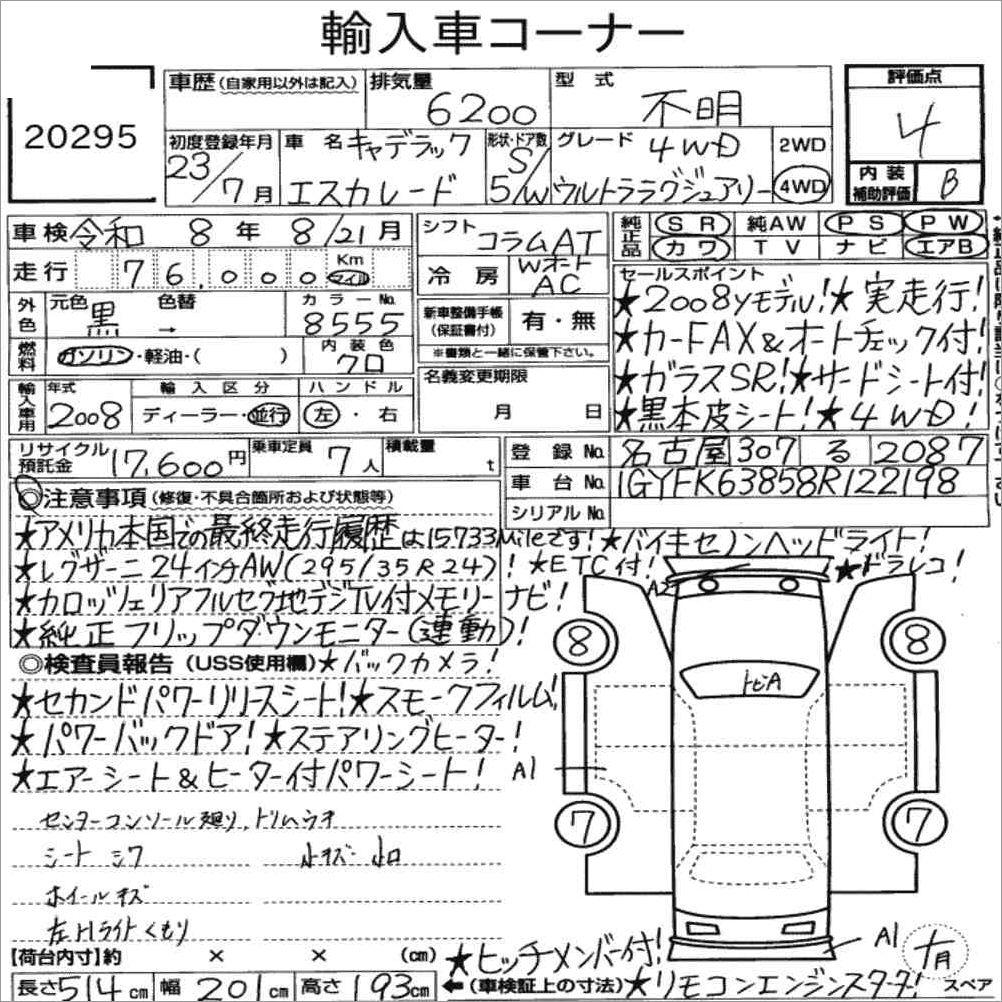 輸入車コーナー
20295
車歴(自家用以外は記入)
排気量 6200
型式 不明
評価点 4
初度登録年月 23/7月
車名 キャデラック エスカレード
形状・ドア数 S/5/W
グレード 4WD ウルトララグジュアリー
2WD
4WD
内装補助評価 B
車検 令和 8年 8/21月
シフト コラムAT
純正品 SR 純AW PS PW
カワ TV ナビ エアB
走行 76,000 Km マイル
冷房 Wオート AC
セールスポイント
★2008yモデル!★実走行!
外色 元色 黒 色替 → カラーNo. 8555
新車整備手帳(保証書付) 有・無
★カーFAX&オートチェック付!
燃料 ガソリン・軽油・( ) 内装色 クロ
※書類と一緒に保管下さい。
★ガラスSR!★サードシート付!
輸入車用 年式 2008 輸入区分 ディーラー・並行 ハンドル 左・右
名義変更期限 月 日
★黒本皮シート!★4WD!
リサイクル預託金 17,600円 乗車定員 7人 積載量 t
登録No. 名古屋307 る 2087
車台No. 1GYFK63858R122198
シリアルNo.
◎注意事項(修復・不具合箇所および状態等)
★アメリカ本国での最終走行履歴は15733Mileです!★バイキセノンヘッドライト!
★レグザーニ24インチAW(295/35R24)!★ETC付!
★ドラレコ!
★カロッツェリアフルセグ地デジTV付メモリーナビ!
★純正フリップダウンモニター(連動)!
◎検査員報告(USS使用欄)★バックカメラ!
★セカンドパワーリリースシート!★スモークフィルム!
★パワーバックドア!★ステアリングヒーター!
★エアーシート&ヒーター付パワーシート!
A2
8
8
トビA
A1
7
7
センターコンソール廻り、トリムウキ
シート シワ 小キズ・小凹
ホイールキズ
左Hライトくもり
【荷台内寸】約 × × (cm)
★ヒッチメンバー付!
A1
有
スペア
長さ514cm 幅201cm 高さ193cm ←(車検証上の寸法)★リモコンエンジンスターター!